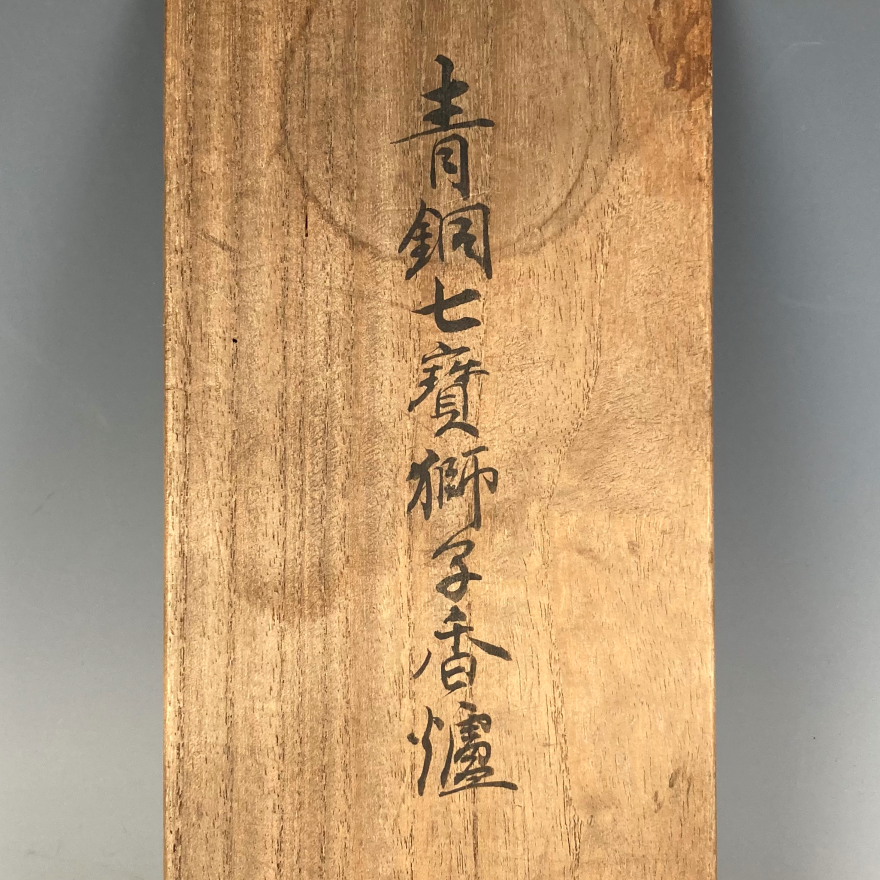 青銅七寶獅子香爐